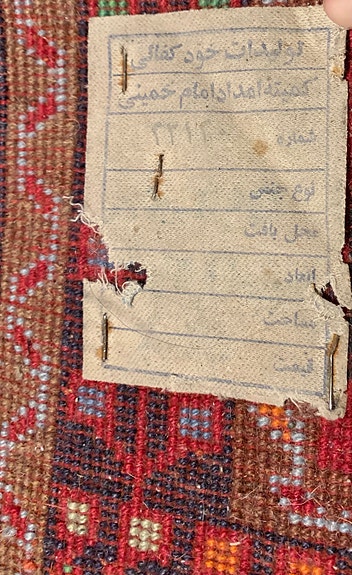 تولیدات خودکفائی
کمیته امداد امام خمینی
شماره
نوع جنس
محل بافت
ابعاد
مساحت
قیمت